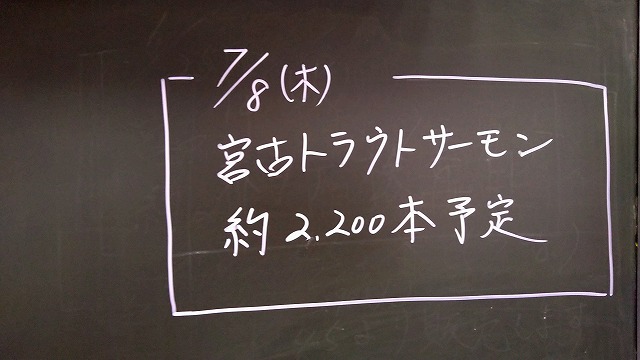 7/8(木)
宮古トラウトサーモン
約2,200本予定